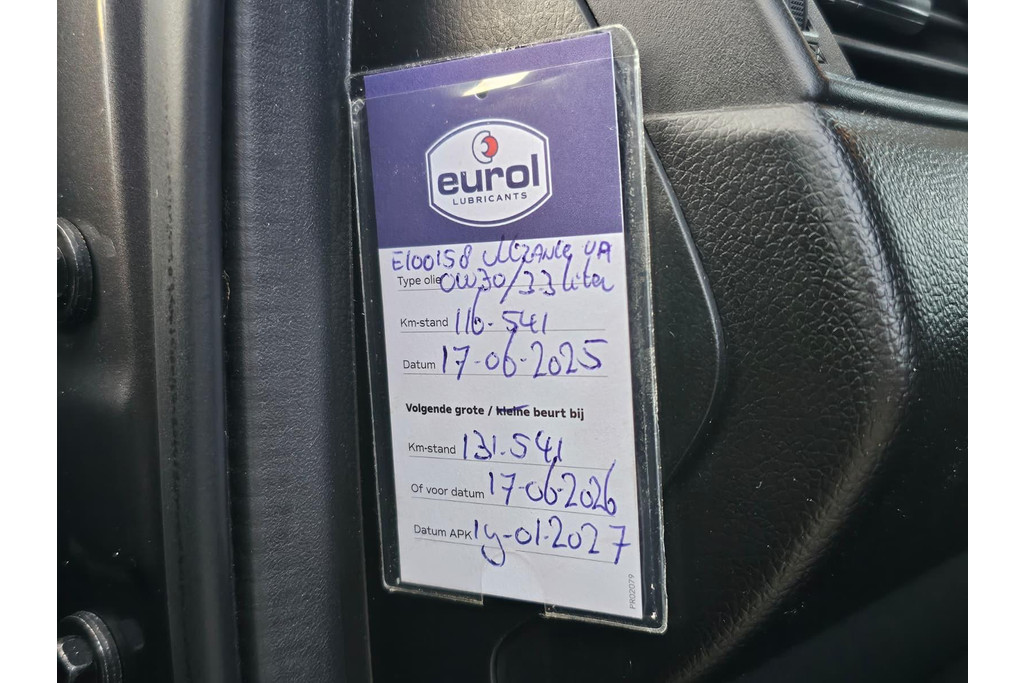 eurol
LUBRICANTS
E100158
Type olie 0W30/3.3 liter
Km-stand 116-541
Datum 17-06-2025
Volgende grote / kleine beurt bij
Km-stand 131.541
Of voor datum 17-06-2026
Datum APK 19-01-2027
PR02079